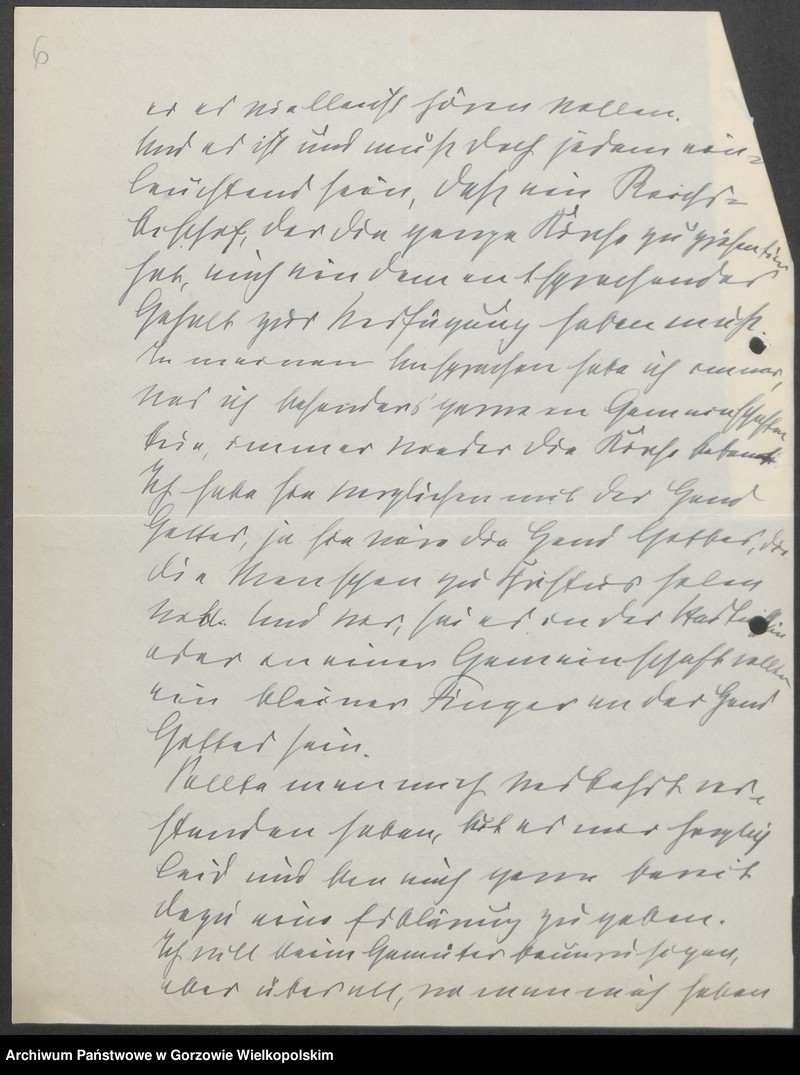 6
er es vielleicht hören wollen.
Und es ist und muß doch jedem ein=
leuchtend sein, daß ein Reichs=
bischof, der die ganze Kirche zu
hat, auch ein dem entsprechendes
Gehalt zur Verfügung haben muß.
In meinen Ansprachen habe ich immer,
was ich besonders gerne in Gemeinschaften
tue, immer wieder die Kirche
Ich habe sie verglichen mit der Hand
Gottes, ja sie wäre die Hand Gottes, die
die Menschen zu Christus holen
will. Und wir, sei es in der
oder in einer Gemeinschaft sollten
ein kleiner Finger an der Hand
Gottes sein.
Sollte man mich verkehrt ver=
standen haben, tut es mir herzlich
leid und bin auch gern bereit
dazu eine Erklärung zu geben.
Ich will keine Gemüter beunruhigen,
aber überall, wo man mich haben
Archiwum Państwowe w Gorzowie Wielkopolskim